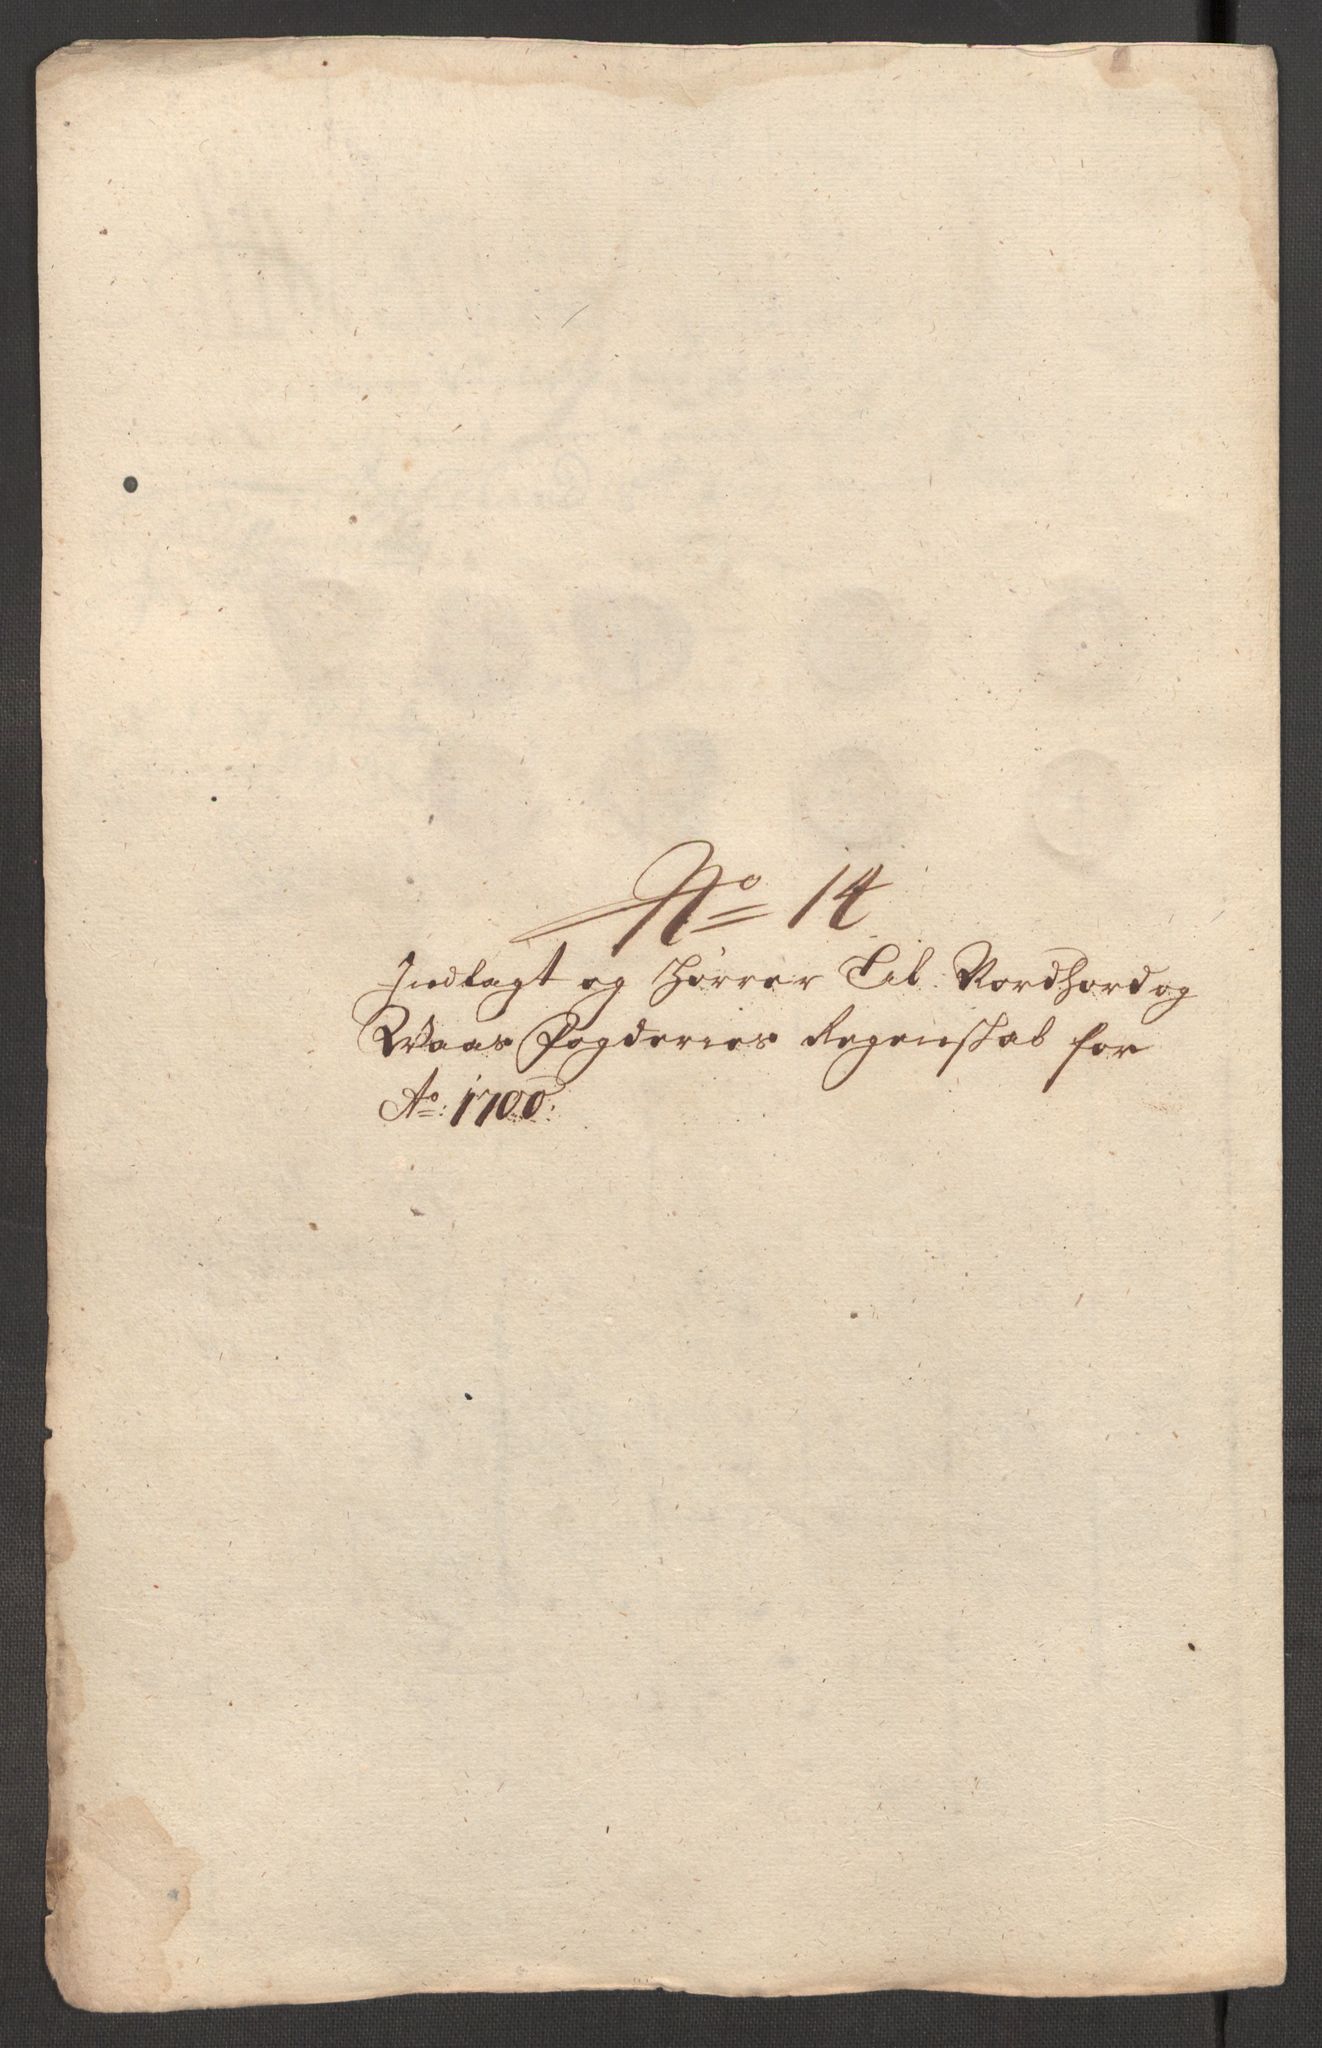 No 14
Indlagt og hörrer Til Nordhord og
Waas Fogderies Regenskab for
Ao: 1700.